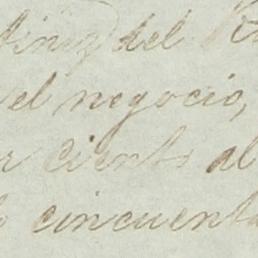 del
el negocio,
ciento al
cincuenta